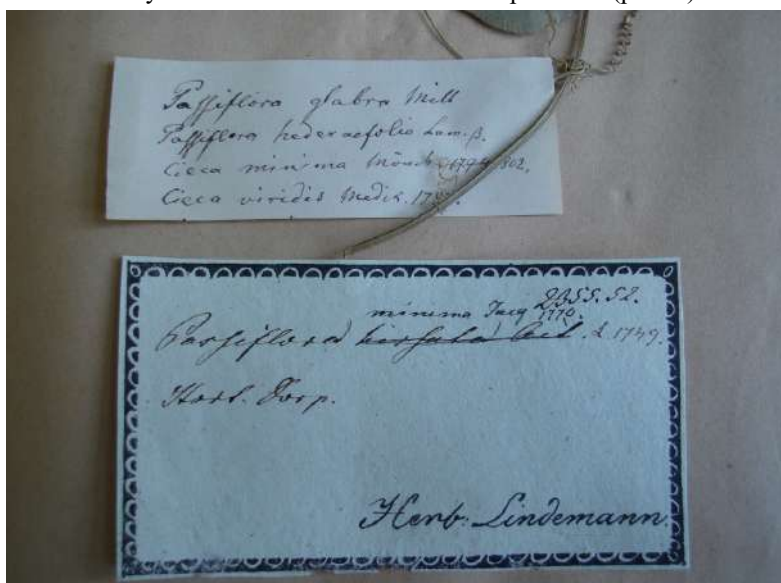 Passiflora glabra Mill
Passiflora hederaefolia Lam. β.
Cieca minima Mönch 1794, 802.
Cieca viridis Medik. 17
2355. 52.
minima Jacq 1770.
Passiflora hirsuta L. 1749.
Hort. Dorp.
Herb. Lindemann